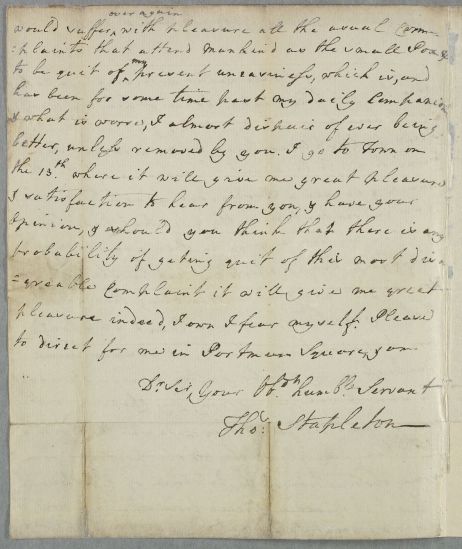 over again
would suffer, with pleasure all the usual Com
=plaints that attend mankind as the small Pox &
to be quit of my present uneasiness, which is, and
has been for some time past my daily Companion
& what is worse, I almost dispair of ever being
better, unless removed by you. I go to Town on
the 13th where it will give me great pleasure
& satisfaction to hear from you, & have your
Opinion, & should you think that there is any
probability of geting quit of this most disa
=greable Complaint it will give me great
pleasure indeed, I own I fear myself. Please
to direct for me in Portman Square, & am
Dr Sir, Your humble Servant
Thos: Stapleton